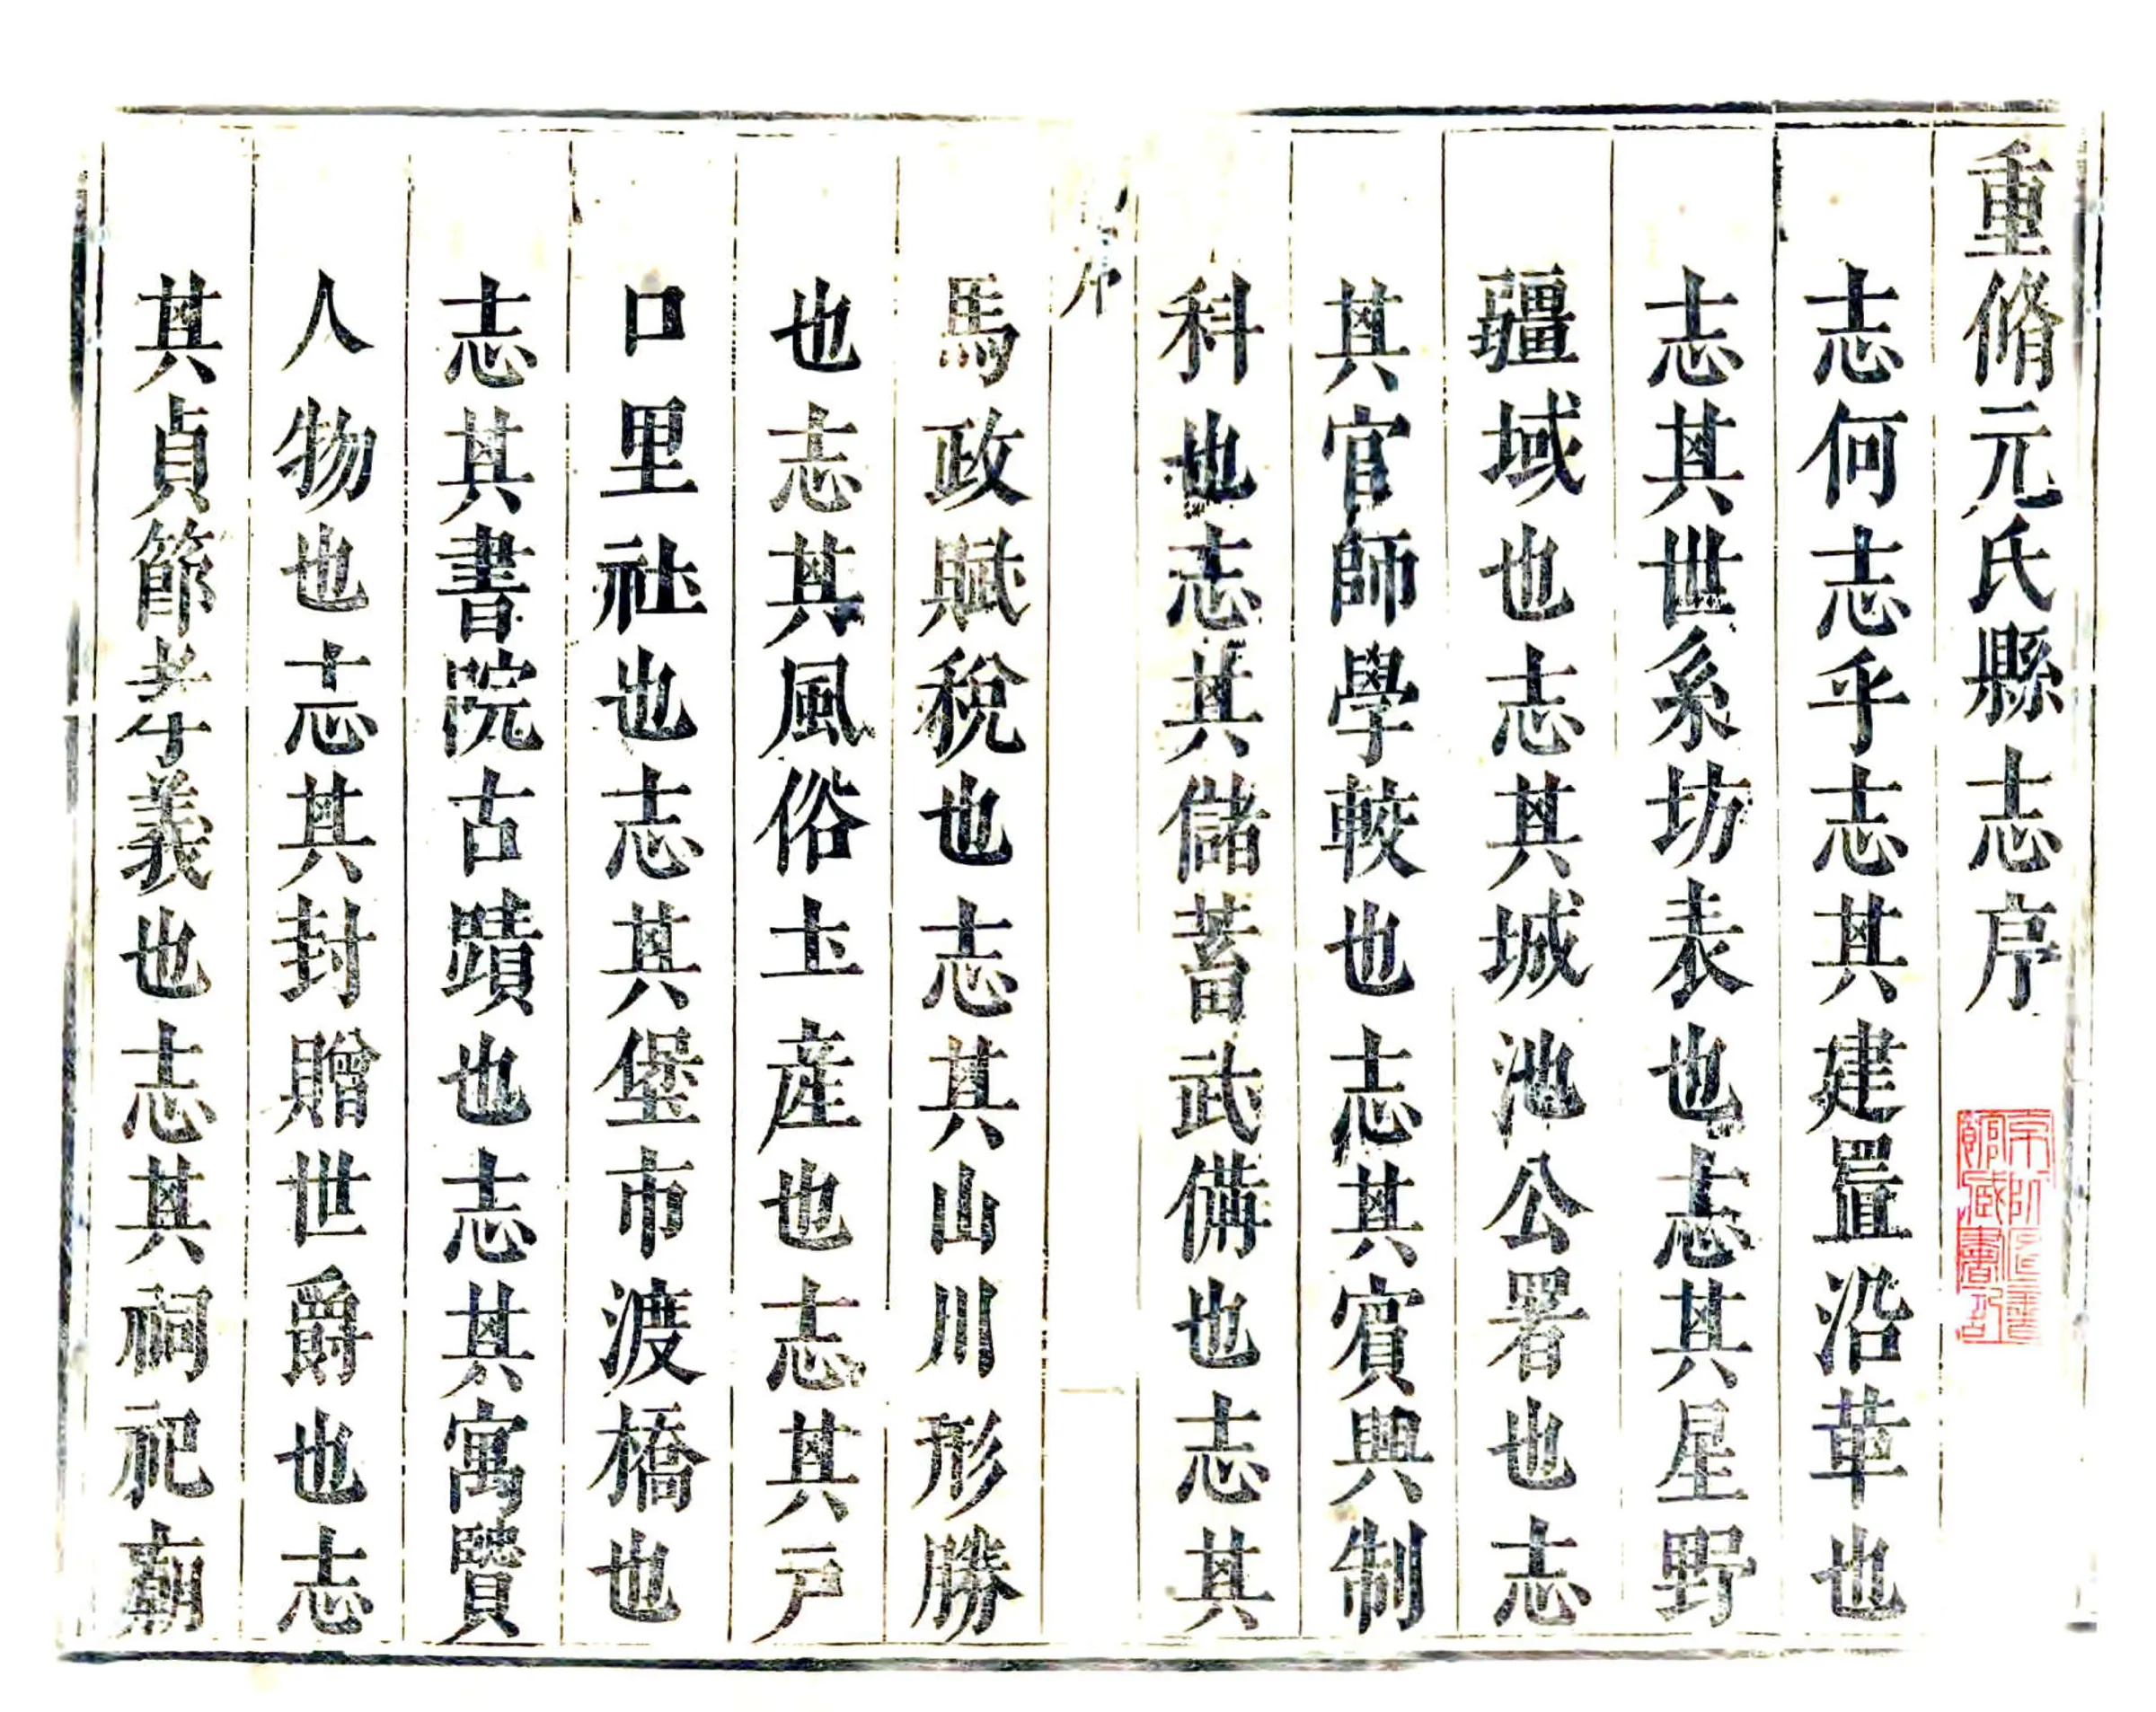 重脩元氏縣志序
志何志乎志其建置沿革也
志其世系坊表也志其星野
疆域也志其城池公署也志
其官師學較也志其賓興制
科也志其儲蓄武備也志其
序
一
馬政賦稅也志其山川形勝
也志其風俗土產也志其戶
口里社也志其堡市渡橋也
志其書院古蹟也志其寓賢
人物也志其封贈世爵也志
其貞節孝義也志其祠祀廟